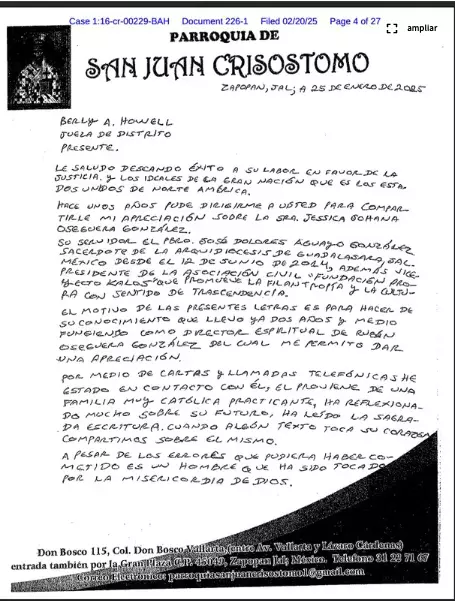 Case 1:16-cr-00229-BAH Document 226-1 Filed 02/20/25 Page 4 of 27
ampliar
PARROQUIA DE
SAN JUAN CRISOSTOMO
ZAPOPAN, JAL; A 25 DE ENERO DE 2025
BERLY A. HOWELL
JUEZA DE DISTRITO
PRESENTE.
LE SALUDO DESEANDO ÉXITO A SU LABOR EN FAVOR DE LA
JUSTICIA. Y LOS IDEALES DE LA GRAN NACIÓN QUE ES LOS ESTA-
DOS UNIDOS DE NORTE AMÉRICA.
HACE UNOS AÑOS PUDE DIRIGIRME A USTED PARA COMPAR
TIRLE MI APRECIACIÓN SOBRE LA SRA. JESSICA JOHANA
OSEGUERA GONZÁLEZ.
SU SERVIDOR EL PBRO. JOSÉ DOLORES AGUAYO GONZÁLEZ
SACERDOTE DE LA ARQUIDIOCESIS DE GUADALAJARA, JAL.
MÉXICO DESDE EL 12 DE JUNIO DE 2014, ADEMÁS VICE-
PRESIDENTE DE LA ASOCIACIÓN CIVIL "FUNDACIÓN PRO-
YECTO KALOS" QUE PROMUEVE LA FILANTROPÍA Y LA CULTU-
RA CON SENTIDO DE TRASCENDENCIA.
EL MOTIVO DE LAS PRESENTES LETRAS ES PARA HACER DE
SU CONOCIMIENTO QUE LLEVO YA DOS AÑOS Y MEDIO
FUNGIENDO COMO DIRECTOR ESPIRITUAL DE RUBÉN
OSEGUERA GONZÁLEZ DEL CUAL ME PERMITO DAR
UNA APRECIACIÓN.
POR MEDIO DE CARTAS Y LLAMADAS TELEFÓNICAS HE
ESTADO EN CONTACTO CON ÉL, EL PROVIENE DE UNA
FAMILIA MUY CATÓLICA PRACTICANTE, HA REFLEXIONA-
DO MUCHO SOBRE SU FUTURO, HA LEÍDO LA SAGRA-
DA ESCRITURA. CUANDO ALGÚN TEXTO TOCA SU CORAZÓN
COMPARTIMOS SOBRE EL MISMO.
A PESAR DE LOS ERRORES QUE PUDIERA HABER CO-
METIDO ES UN HOMBRE QUE HA SIDO TOCADO
POR LA MISERICORDIA DE DIOS.
Don Bosco 115, Col. Don Bosco Vallarta (entre Av. Vallarta y Lázaro Cárdenas)
entrada también por la Gran Plaza C.P. 45049, Zapopan Jal; México. Telefono 31 22 71 67
Correo Electronico: parroquiasanjuancrisostomo1@gmail.com